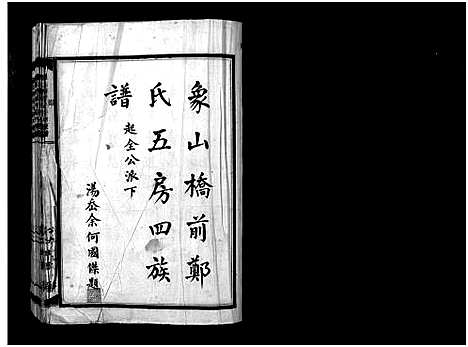 象山橋前鄭
氏五房四族
譜
起全公派下
湯岙余何國傑題